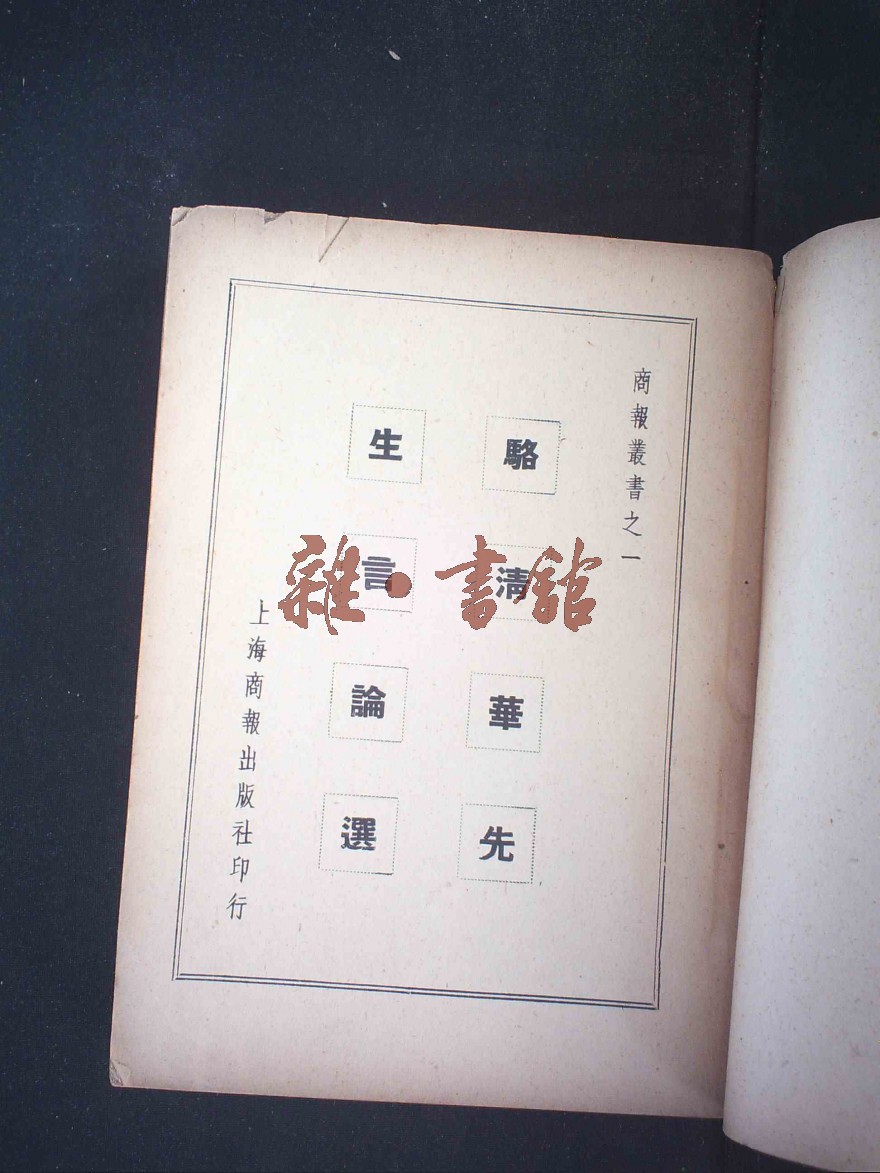 商報叢書之一
駱清華先
生言論選
上海商報出版社印行
雜·書館